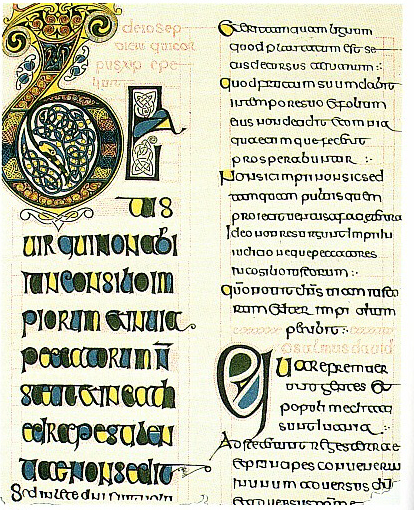 BE
ATUS
UIR QUI NON ABI
IT IN CONSILIO IM
PIORUM ET IN UIA
PECCATORUM N̄
STETIT ET IN CATH
EDRA PESTILEN
TIAE NON SEDIT
Sed in lege dni
Et erit tamquam lignum
quod plantatum est se
cus decursus aquarum :·
Quod fructum suum dabit
in tempore suo Et folium
eius non decidet Et omnia
quaecumque fecerit
prosperabuntur :·
Non sic impii non sic sed
tamquam puluis quem
proiecit uentus a facie terrae
Ideo non resurgunt impii in
iudicio neque peccatores
in consilio iustorum :·
Quoniam nouit dns̄ uiam iusto
rum Et iter impiorum
peribit :·
psalmus dauid
Quare fremuer
unt gentes Et
populi meditati
sunt inania
Adsteterunt reges terrae
et principes conuenerunt
in unum aduersus dnm̄
et aduersus